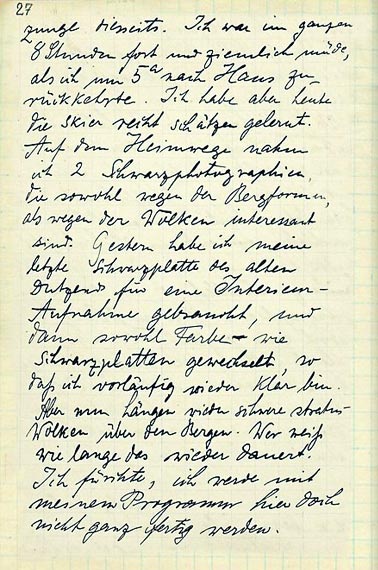 27
zunge diesseits. Ich war im ganzen
8 Stunden fort und ziemlich müde,
als ich um 5ª nach Haus zu-
rückkehrte. Ich habe aber heute
die Skier recht schätzen gelernt.
Auf dem Heimwege nahm
ich 2 Schwarzphotographien,
die sowohl wegen der Bergformen,
als wegen der Wolken interessant
sind. Gestern habe ich meine
letzte Schwarzplatte des alten
Dutzends für eine Interieur-
Aufnahme gebraucht, und
dann sowohl Farbe- wie
Schwarzplatten gewechselt, so
daß ich vorläufig wieder klar bin.
Aber nun hängen wieder schwere stratus-
Wolken über den Bergen. Wer weiß
wie lange das wieder dauert.
Ich fürchte, ich werde mit
meinem Programm hier doch
nicht ganz fertig werden.